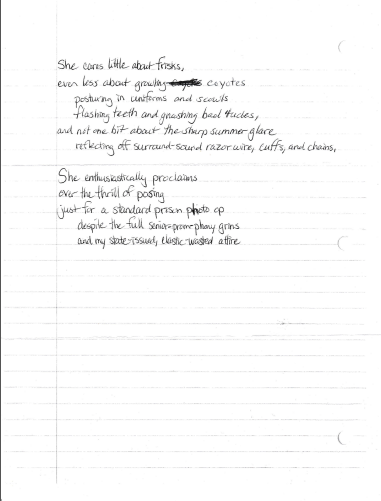 She cares little about frisks,
even less about growling coyotes
posturing in uniforms and scowls
flashing teeth and gnashing bad 'tudes,
and not one bit about the sharp summer glare
reflecting off surround-sound razor wire, cuffs, and chains,
She enthusiastically proclaims
over the thrill of posing
just for a standard prison photo op
despite the full senior-prom-phony grins
and my state-issued, elastic-waisted attire